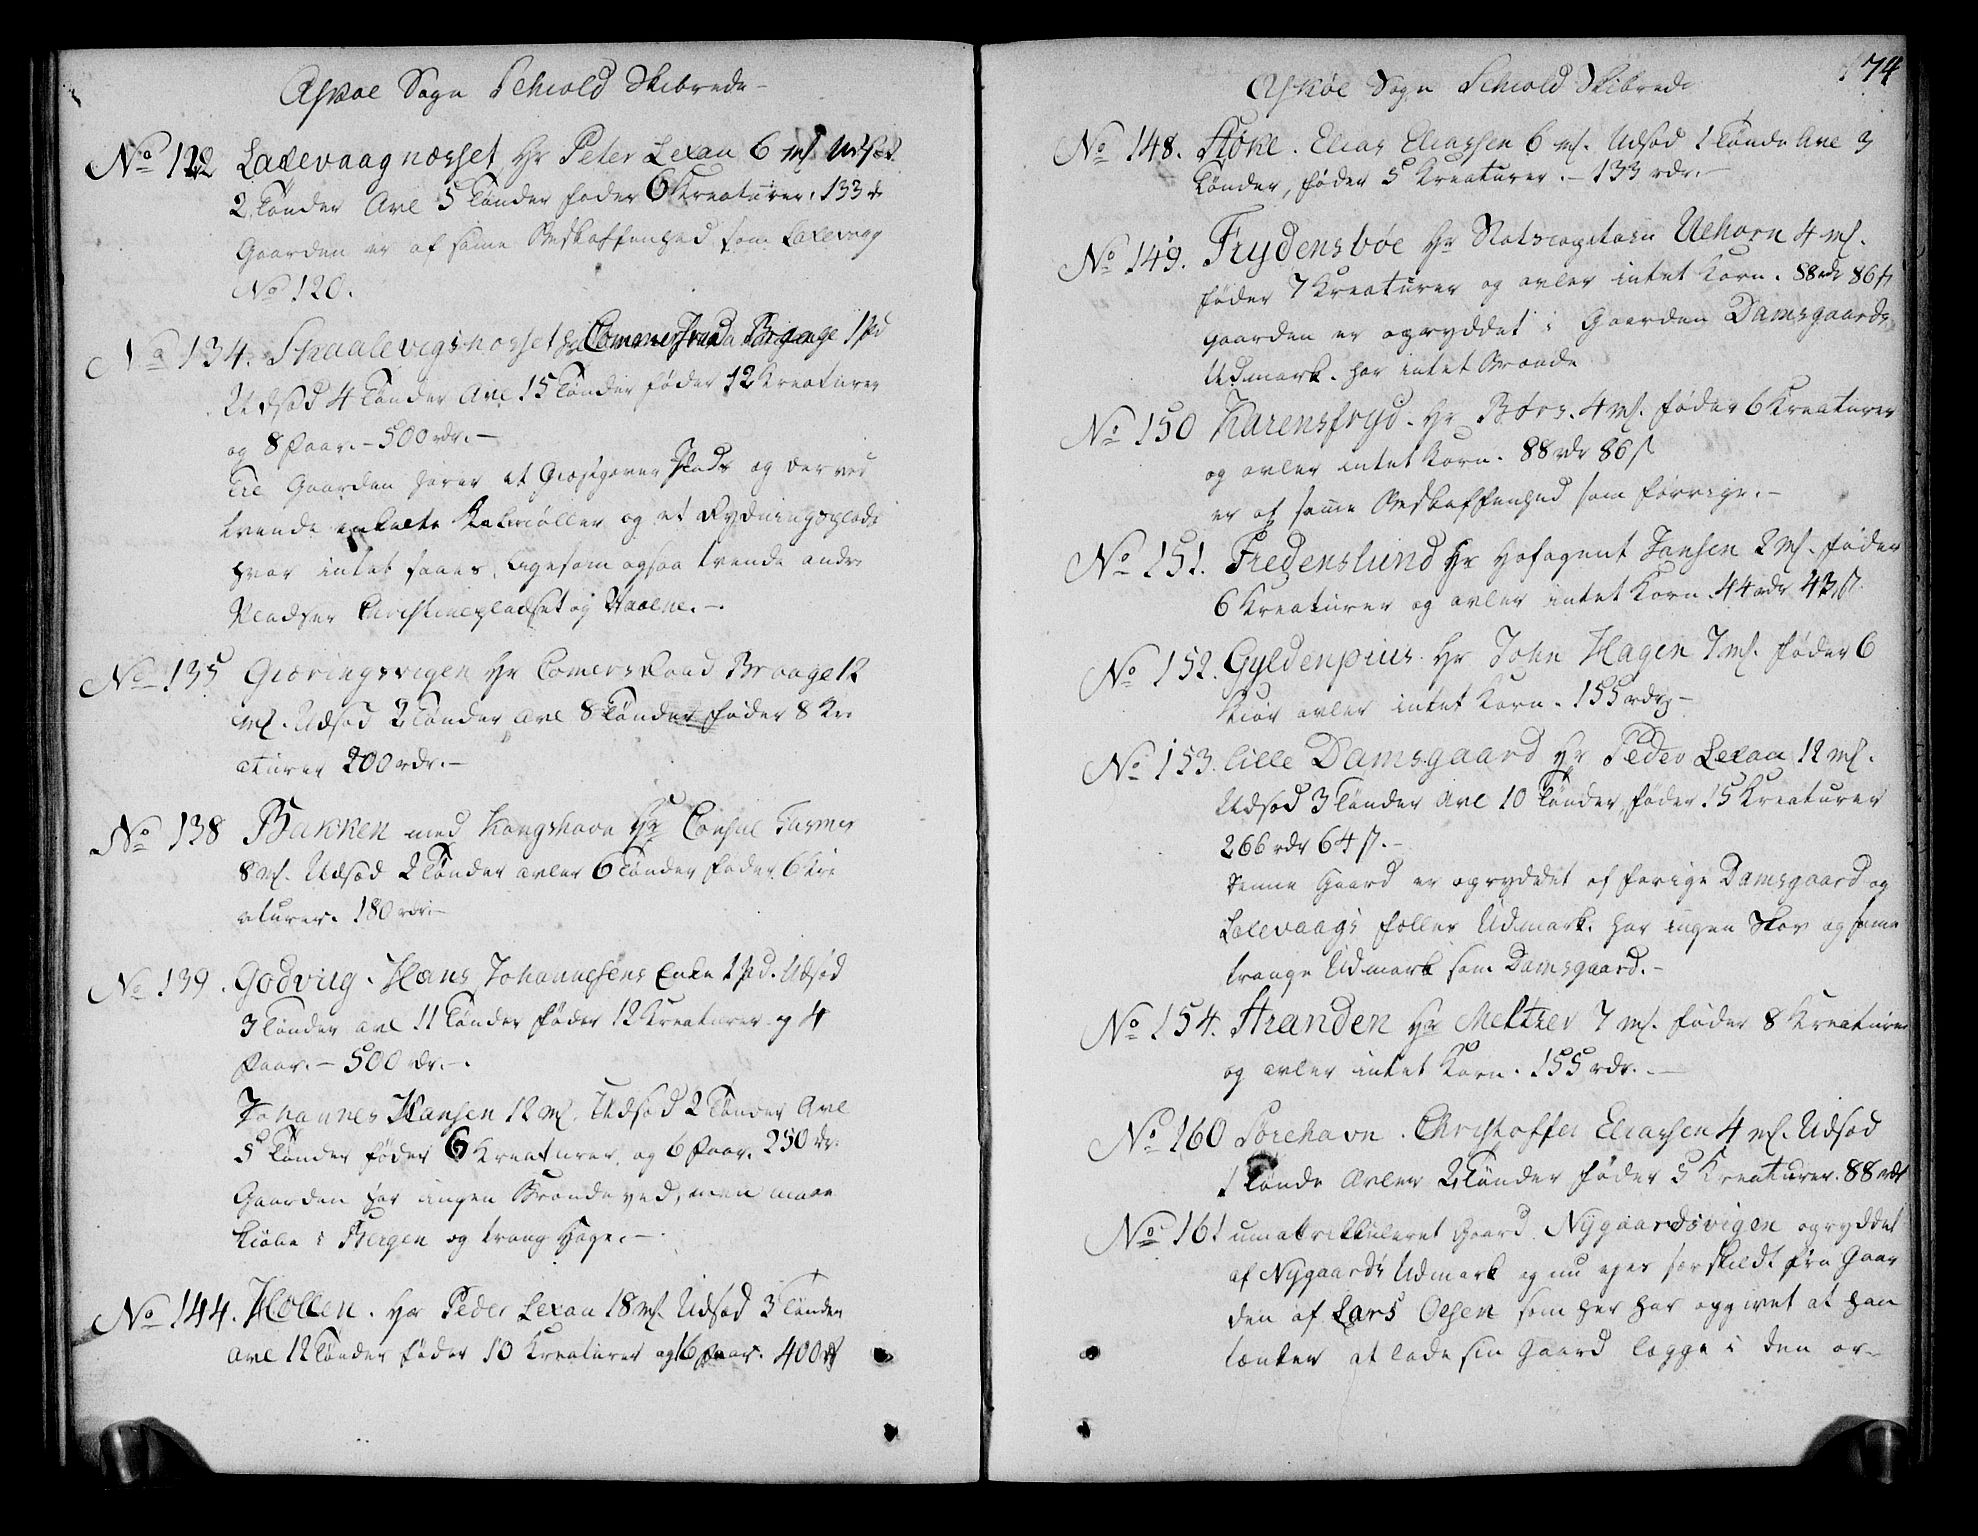 Askøe Sogn Schiold Skibrede
No 122 Laxevaagnæsset Hr Peter Lexau 6 mℓ Udsæd
2 Tønder Avl 5 Tønder føder 6 Kreaturer. 133 rdr
Gaarden er af samme Beskaffenhed som Laxevaag
No 120.
No 134. Skaalevigsnæsset Hr Commerseraad Krohn 1 Pd
Udsæd 4 Tønder Avl 15 Tønder føder 12 Kreaturer
og 8 Faar. – 500 rdr. –
Til Gaarden hører et Giestgiver Plads og der ved
tvende Møller og et Rydningsplads
hvor intet saaes, ligesom ogsaa tvende andre
Pladser Christinepladset og
No 135 Giæringsvigen Hr Comersraad 12
mℓ. Udsæd 2 Tønder Avl 8 Tønder føder 8 Kre
aturer 200 rdr. –
No 138 Bakken med Kongshavn Hr Consul
8 mℓ. Udsæd 2 Tønder avler 6 Tønder føder 6 Kre
aturer. 180 rdr. –
No 139. Godvig. Hans Johannesens Enke 1 Pd. Udsæd
3 Tønder avl 11 Tønder føder 12 Kreaturer og 4
Faar. – 500 rdr. –
Johannes Hansen 12 mℓ. Udsæd 2 Tønder Avl
5 Tønder føder 6 Kreaturer og 6 Faar. 250 rdr.
Gaarden har ingen Brændeved, men maae
kiøbe i Bergen og trang Hage. –
No 144. Hollen. Hr Peder Lexau 18 mℓ. Udsæd 3 Tønder
avl 12 Tønder føder 10 Kreaturer og 16 Faar. 400 rdr
174
Askøe Sogn Schiold Skibrede
No 148. Støne. Elias Eliassen 6 mℓ. Udsæd 1 Tønde Avl 3
Tønder, føder 5 Kreaturer. – 133 rdr. –
No 149. Frydensbøe Hr Uehorn 4 mℓ.
føder 7 Kreaturer og avler intet Korn. 88 rdr 86 ß
gaarden er opryddet i Gaarden Damsgaards
Udmark. har intet Brænde
No 150 Karensfryd. Hr Børs. 4 mℓ. føder 6 Kreaturer
og avler intet Korn. 88 rdr 86 ß
er af samme Beskaffenhed som forrige. –
No 151. Fredenslund Hr Hofagent Jansen 2 mℓ. føder
6 Kreaturer og avler intet Korn. 44 rdr 43 ß.
No 152. Gyldenpriis. Hr John Hagen 7 mℓ. føder 6
Kiør avler intet Korn. 155 rdr –
No 153. lille Damsgaard Hr Peder Lexau 12 mℓ.
Udsæd 3 Tønder Avl 10 Tønder, føder 15 Kreaturer
266 rdr 64 ß. –
Denne Gaard er opryddet af forige Damsgaard og
Laxevaags fælles Udmark. har ingen Skov og samme
trange Udmark som Damsgaard. –
No 154. Stranden Hr Meltzer 7 mℓ. føder 8 Kreaturer
og avler intet Korn. 155 rdr. –
No 160 Sørehavn. Christoffer Eliassen 4 mℓ. Udsæd
1 Tønde Avler 2 Tønder føder 5 Kreaturer. 88 rdr
No 161 umatrikkuleret Gaard Nygaardsvigen opryddet
af Nygaards Udmark og nu ejes særskildt fra Gaar
den af Lars Olsen som her har opgivet at han
tænker at lade sin Gaard lægge i den or-